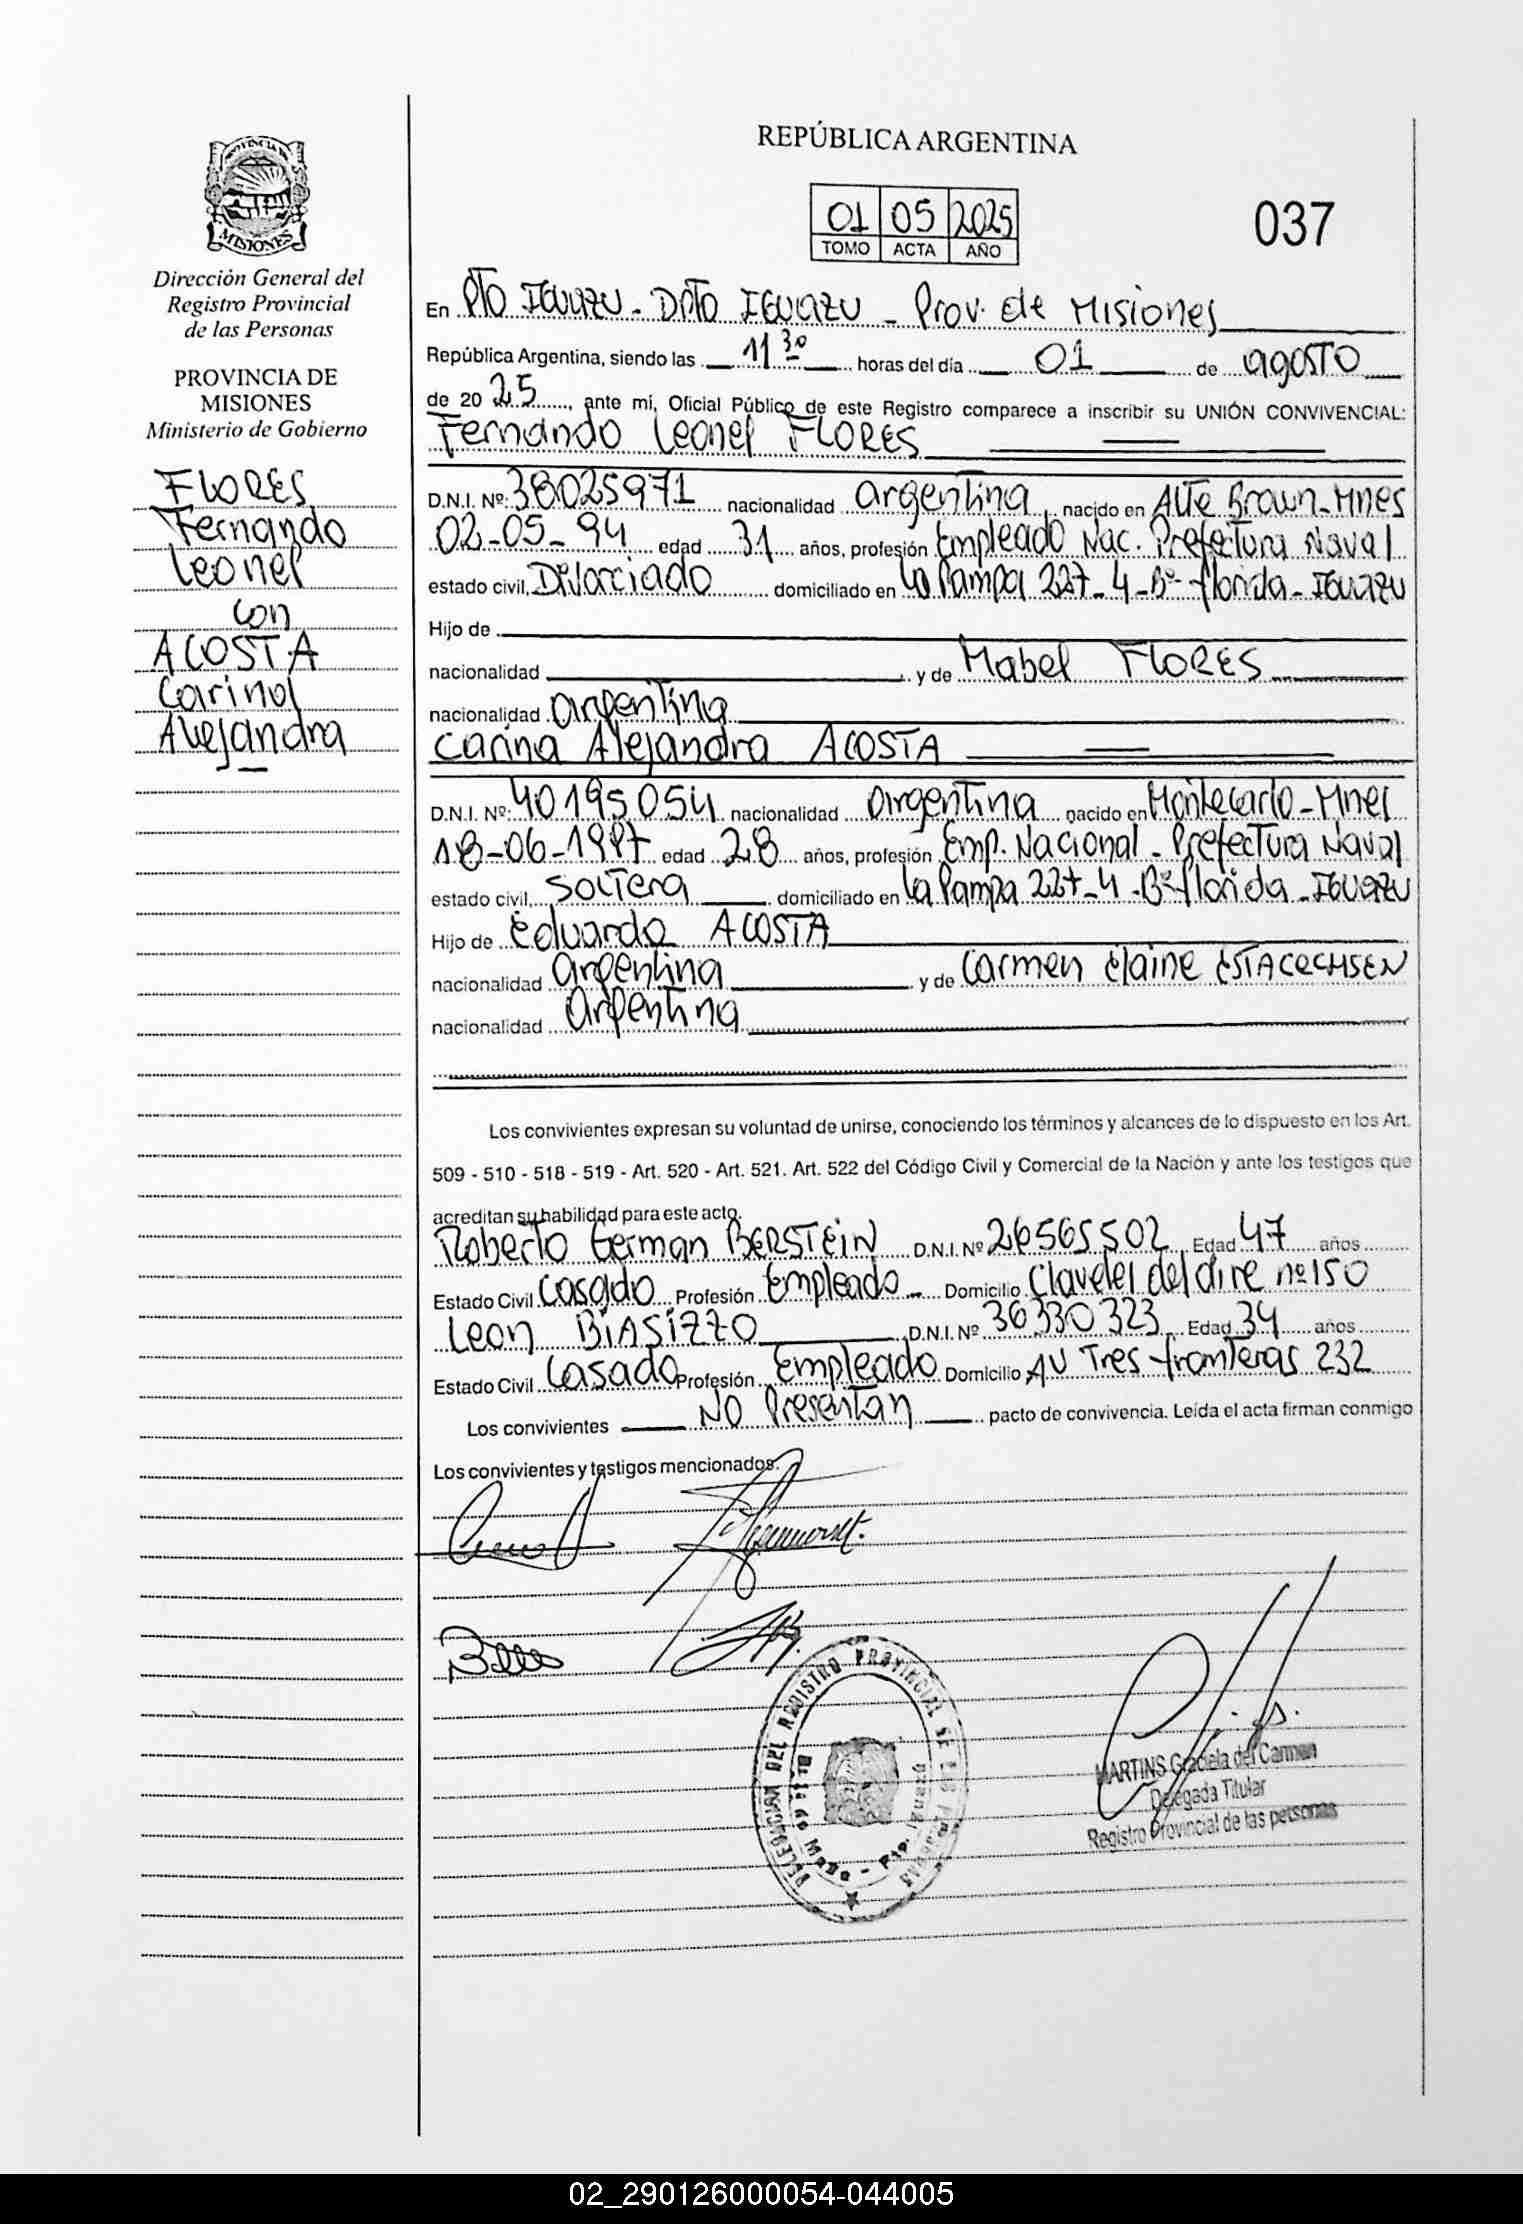 REPÚBLICA ARGENTINA
01 05 2025
TOMO ACTA AÑO
037
PROVINCIA DE
MISIONES
Dirección General del
Registro Provincial
de las Personas
PROVINCIA DE
MISIONES
Ministerio de Gobierno
FLORES
Fernando
Leonel
con
ACOSTA
Carina
Alejandra
En Pto IGUAZU - Dpto IGUAZU - Prov. de Misiones
República Argentina, siendo las 11 30 horas del día 01 de agosto
de 20 25, ante mí, Oficial Público de este Registro comparece a inscribir su UNIÓN CONVIVENCIAL:
Fernando Leonel FLORES
D.N.I. Nº: 38025971 nacionalidad argentina nacido en Alte Brown-Mnes
02-05-94 edad 31 años, profesión Empleado Nac. Prefectura Naval
estado civil, Divorciado domiciliado en La Pampa 227-4-Bº florida-IGUAZU
Hijo de
nacionalidad y de Mabel FLORES
nacionalidad argentina
Carina Alejandra ACOSTA
D.N.I. Nº: 40195054 nacionalidad argentina nacido en Montecarlo-Mnes
18-06-1997 edad 28 años, profesión Emp. Nacional - Prefectura Naval
estado civil, soltera domiciliado en La Pampa 227-4-Bº florida-IGUAZU
Hijo de Eduardo ACOSTA
nacionalidad argentina y de Carmen Elaine
nacionalidad Argentina
Los convivientes expresan su voluntad de unirse, conociendo los términos y alcances de lo dispuesto en los Art.
509 - 510 - 518 - 519 - Art. 520 - Art. 521. Art. 522 del Código Civil y Comercial de la Nación y ante los testigos que
acreditan su habilidad para este acto.
Roberto German BERSTEIN D.N.I. Nº 26565502 Edad 47 años
Estado Civil Casado Profesión Empleado - Domicilio Claveles del aire nº150
Leon BIASIZZO D.N.I. Nº 36330323 Edad 34 años
Estado Civil Casado Profesión Empleado Domicilio AV Tres fronteras 232
Los convivientes NO Presentan pacto de convivencia. Leída el acta firman conmigo
Los convivientes y testigos mencionados.
DELEGACION DEL REGISTRO PROVINCIAL DE LAS PERSONAS
MARTINS Graciela del Carmen
Delegada Titular
Registro Provincial de las personas
02_290126000054-044005